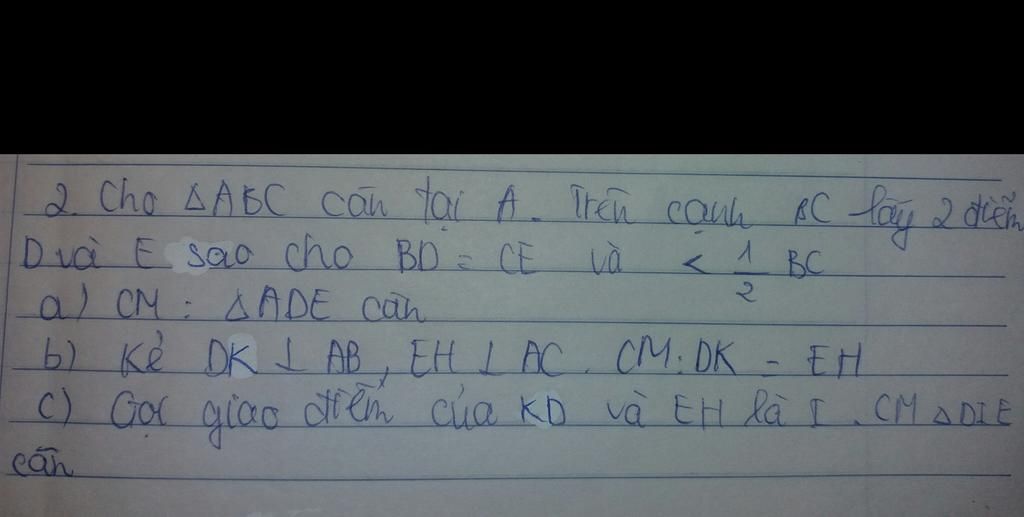 2. Cho ΔABC cân tại A. Trên cạnh BC lấy 2 điểm
D và E sao cho BD = CE và < 1/2 BC
a) CM : ΔADE cân
b) Kẻ DK ⊥ AB, EH ⊥ AC. CM: DK = EH
c) Gọi giao điểm của KD và EH là I. CM ΔDIE
cân